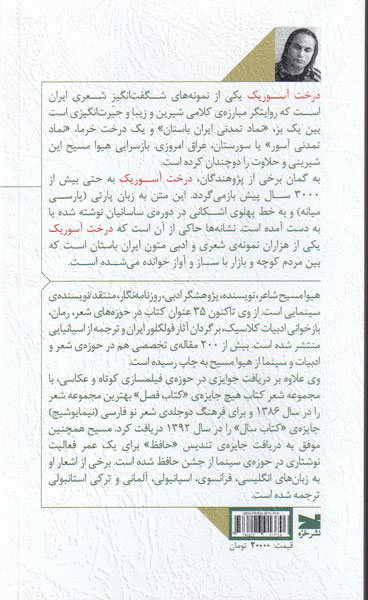 درخت آسوریک یکی از نمونه‌های شگفت‌انگیز شعری ایران
است که روایتگر مبارزه‌ی کلامی شیرین و زیبا و حیرت‌انگیزی است
بین یک بز، «نماد تمدنی ایران باستان» و یک درخت خرما، «نماد
تمدنی آسور» یا سورستان، عراق امروزی. بازسرایی هیوا مسیح این
شیرینی و حلاوت را دوچندان کرده است.
به گمان برخی از پژوهندگان، درخت آسوریک به حتی بیش از
۳۰۰۰ سال پیش بازمی‌گردد. این متن به زبان پارتی (پارسی
میانه) و به خط پهلوی اشکانی در دوره‌ی ساسانیان نوشته شده یا
به دست آمده است. نشانه‌ها حاکی از آن است که درخت آسوریک
یکی از هزاران نمونه‌ی شعری و ادبی متون ایران باستان است که
بین مردم کوچه و بازار با ساز و آواز خوانده می‌شده است.
هیوا مسیح شاعر، نویسنده، پژوهشگر ادبی، روزنامه‌نگار، منتقد/نویسنده‌ی
سینمایی است. از وی تاکنون ۳۵ عنوان کتاب در حوزه‌های شعر، رمان،
بازخوانی ادبیات کلاسیک، برگردان آثار فولکلور ایران و ترجمه از اسپانیایی
منتشر شده است. بیش از ۲۰۰ مقاله‌ی تخصصی هم در حوزه‌ی شعر و
ادبیات و سینما از هیوا مسیح به چاپ رسیده است.
وی علاوه بر دریافت جوایزی در حوزه‌ی فیلمسازی کوتاه و عکاسی، با
مجموعه شعر کتاب هیچ جایزه‌ی «کتاب فصل» بهترین مجموعه شعر
را در سال ۱۳۸۶ و برای فرهنگ دوجلدی شعر نو فارسی (نیما‌یوشیج)
جایزه‌ی «کتاب سال» را در سال ۱۳۹۲ دریافت کرد. مسیح همچنین
موفق به دریافت جایزه‌ی تندیس «حافظ» برای یک عمر فعالیت
نوشتاری در حوزه‌ی سینما از جشن حافظ شده است. برخی از اشعار او
به زبان‌های انگلیسی، فرانسوی، اسپانیولی، آلمانی و ترکی استانبولی
ترجمه شده است.
نشر خزه
قیمت: ۲۰۰۰۰ تومان